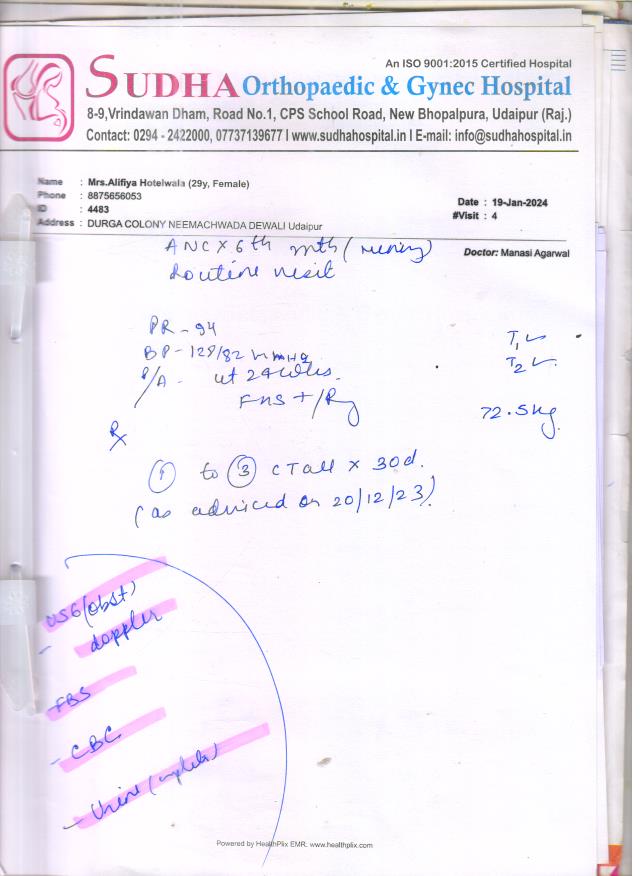 An ISO 9001:2015 Certified Hospital
SUDHA Orthopaedic & Gynec Hospital
8-9,Vrindawan Dham, Road No.1, CPS School Road, New Bhopalpura, Udaipur (Raj.)
Contact: 0294 - 2422000, 07737139677 I www.sudhahospital.in I E-mail: info@sudhahospital.in
Name : Mrs.Alifiya Hotelwala (29y, Female)
Phone : 8875656053
ID : 4483
Address : DURGA COLONY NEEMACHWADA DEWALI Udaipur
Date : 19-Jan-2024
#Visit : 4
Doctor: Manasi Agarwal
ANC x 6th mth (
Routine visit
PR - 94
BP - 128/82 mmHg
P/A - ut 24 wks.
FHS + / Rg
T1 ✓
T2 ✓
72.5 kg
Rx
① to ③ CTall x 30d.
(as adviced on 20/12/23)
USG (obst)
- doppler
- FBS
- CBC
- Urine (
Powered by HealthPlix EMR. www.healthplix.com